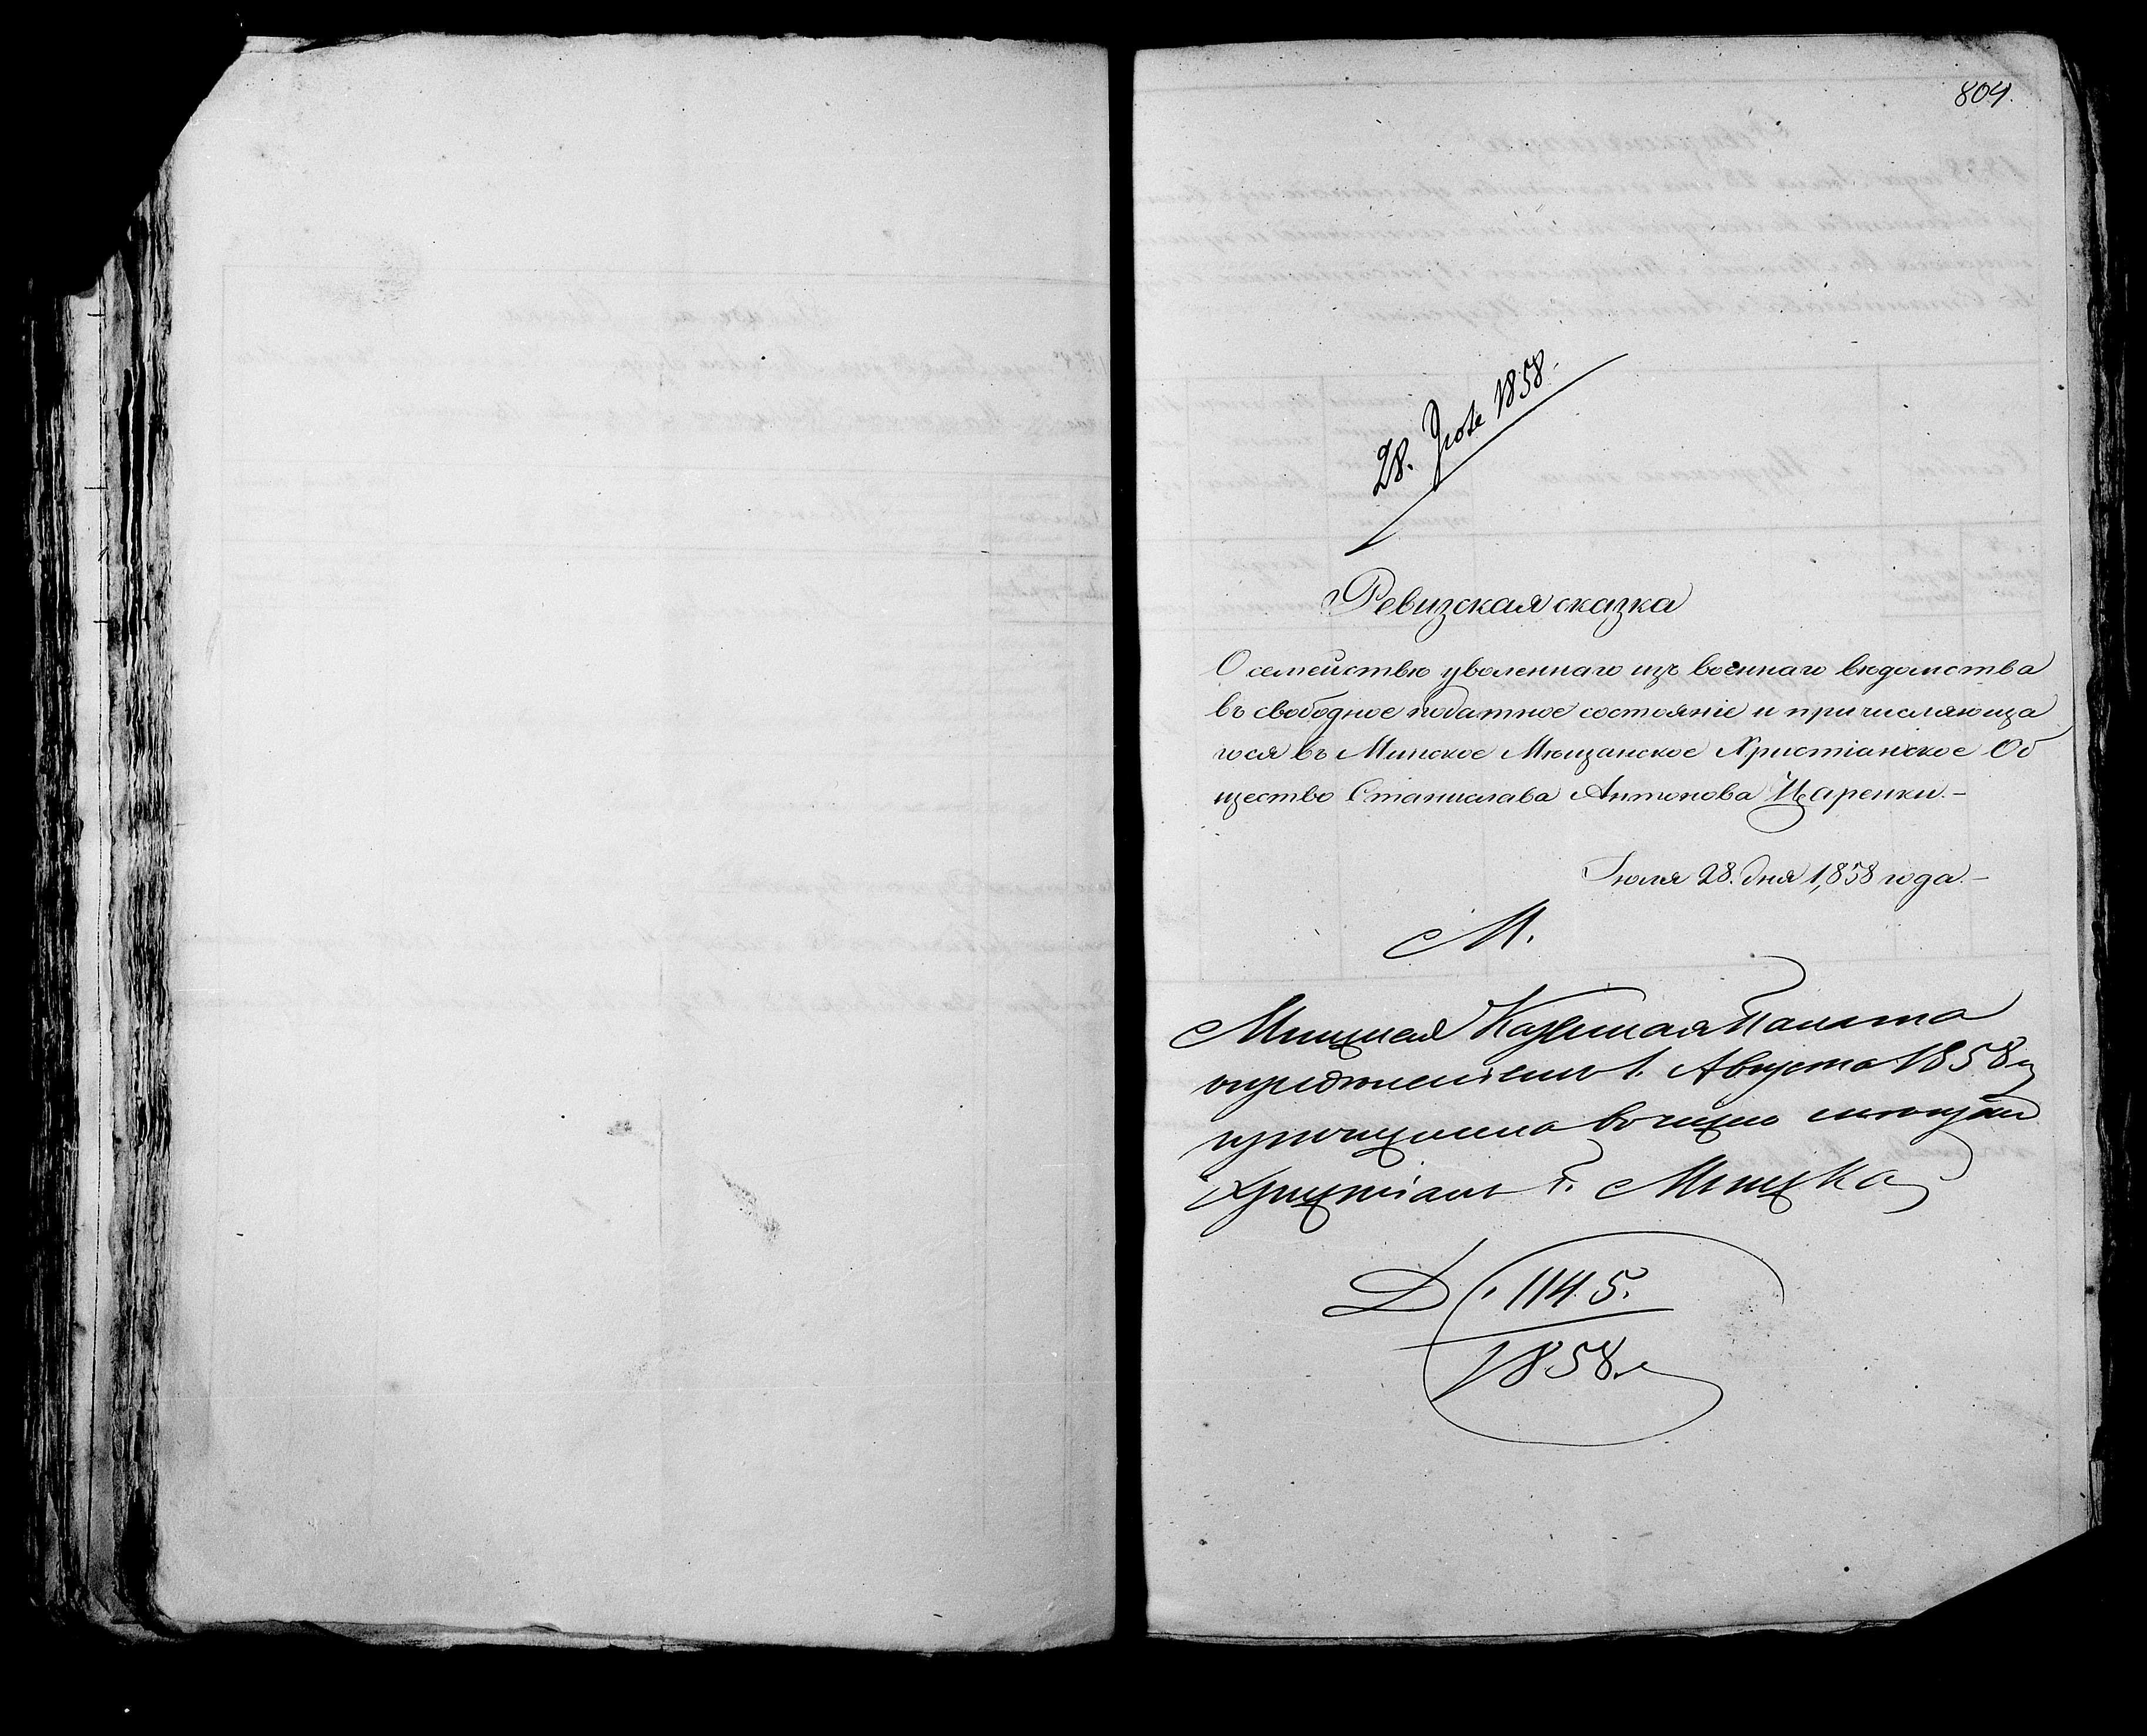 804.
28. Іюля 1858.
Ревизская сказка
О семействѣ уволеннаго изъ военнаго вѣдомства
въ свободное податное состояніе и причисляюща
гося въ Минское Мѣщанское Христіанское Об
щество Станислава Антонова Царенки.—
Іюля 28. дня 1858 года.—
М.
Минская Казенная Палата
опредѣленіемъ 1. Августа 1858 г
причислила въ число мѣщан
христіанъ г. Минска
Д. 1145.
1858.